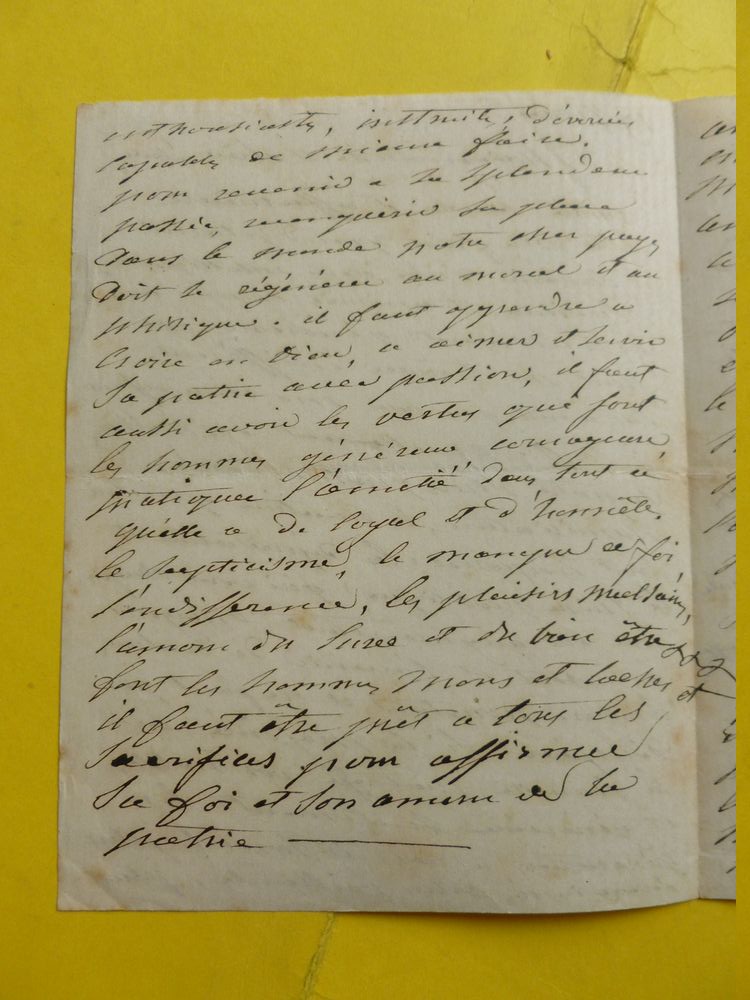 enthousiaste, instruite, dévouée
capables de mieux faire.
pour revenir a sa splendeur
passée, reconquérir sa place
dans le monde notre cher pays
doit se régénérer au moral et au
phisique. il faut apprendre a
croire en Dieu, a aimer et servir
sa patrie avec passion, il faut
aussi avoir les vertus qui font
les hommes généreux courageux,
pratiquer l'amitié dans tout ce
qu'elle a de loyal et d'honnête.
le septicisme, le manque de foi
l'indifference, les plaisirs malsains,
l'amour du luxe et du bien être
font les hommes mous et laches et
il faut être prêt a tous les
sacrifices pour affirmer
sa foi et son amour de la
patrie